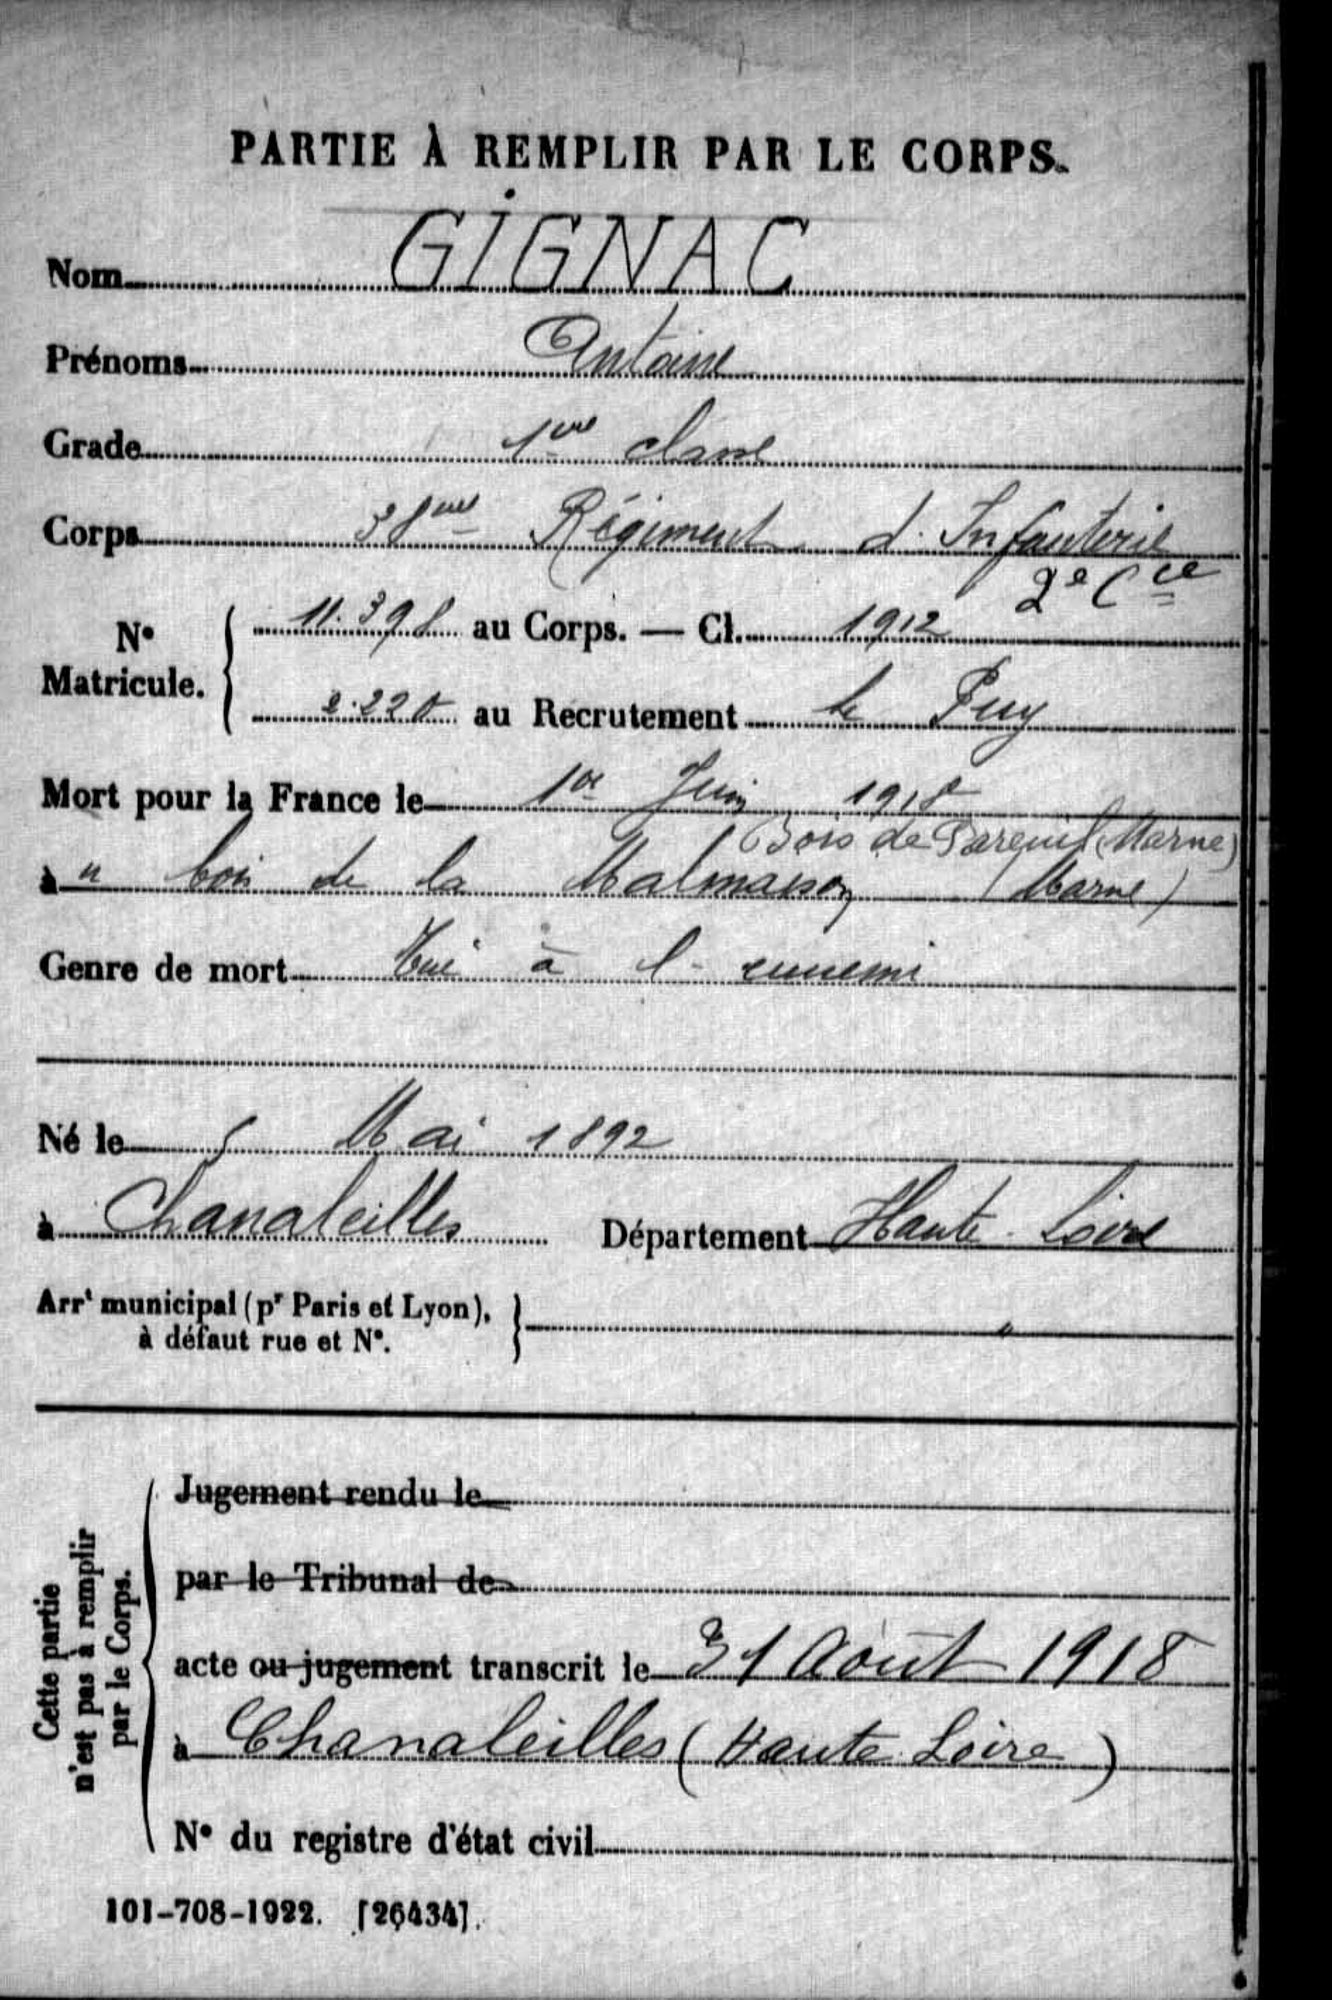 PARTIE À REMPLIR PAR LE CORPS.
Nom GIGNAC
Prénoms Antoine
Grade 1ere classe
Corps 38eme Régiment d'Infanterie
2e Cie
N° Matricule. 11.398 au Corps. — Cl. 1912
2.220 au Recrutement le Puy
Mort pour la France le 1er Juin 1918
Bois de (Marne)
à " bois de la Malmaison (Marne)
Genre de mort Tué à l'ennemi
Né le 5 Mai 1892
à Chanaleilles Département Haute-Loire
Arrt municipal (pr Paris et Lyon),
à défaut rue et N°. "
Cette partie
n'est pas à remplir
par le Corps.
Jugement rendu le
par le Tribunal de
acte ou jugement transcrit le 31 Août 1918
à Chanaleilles (Haute Loire)
N° du registre d'état civil
101-708-1922. [26434].